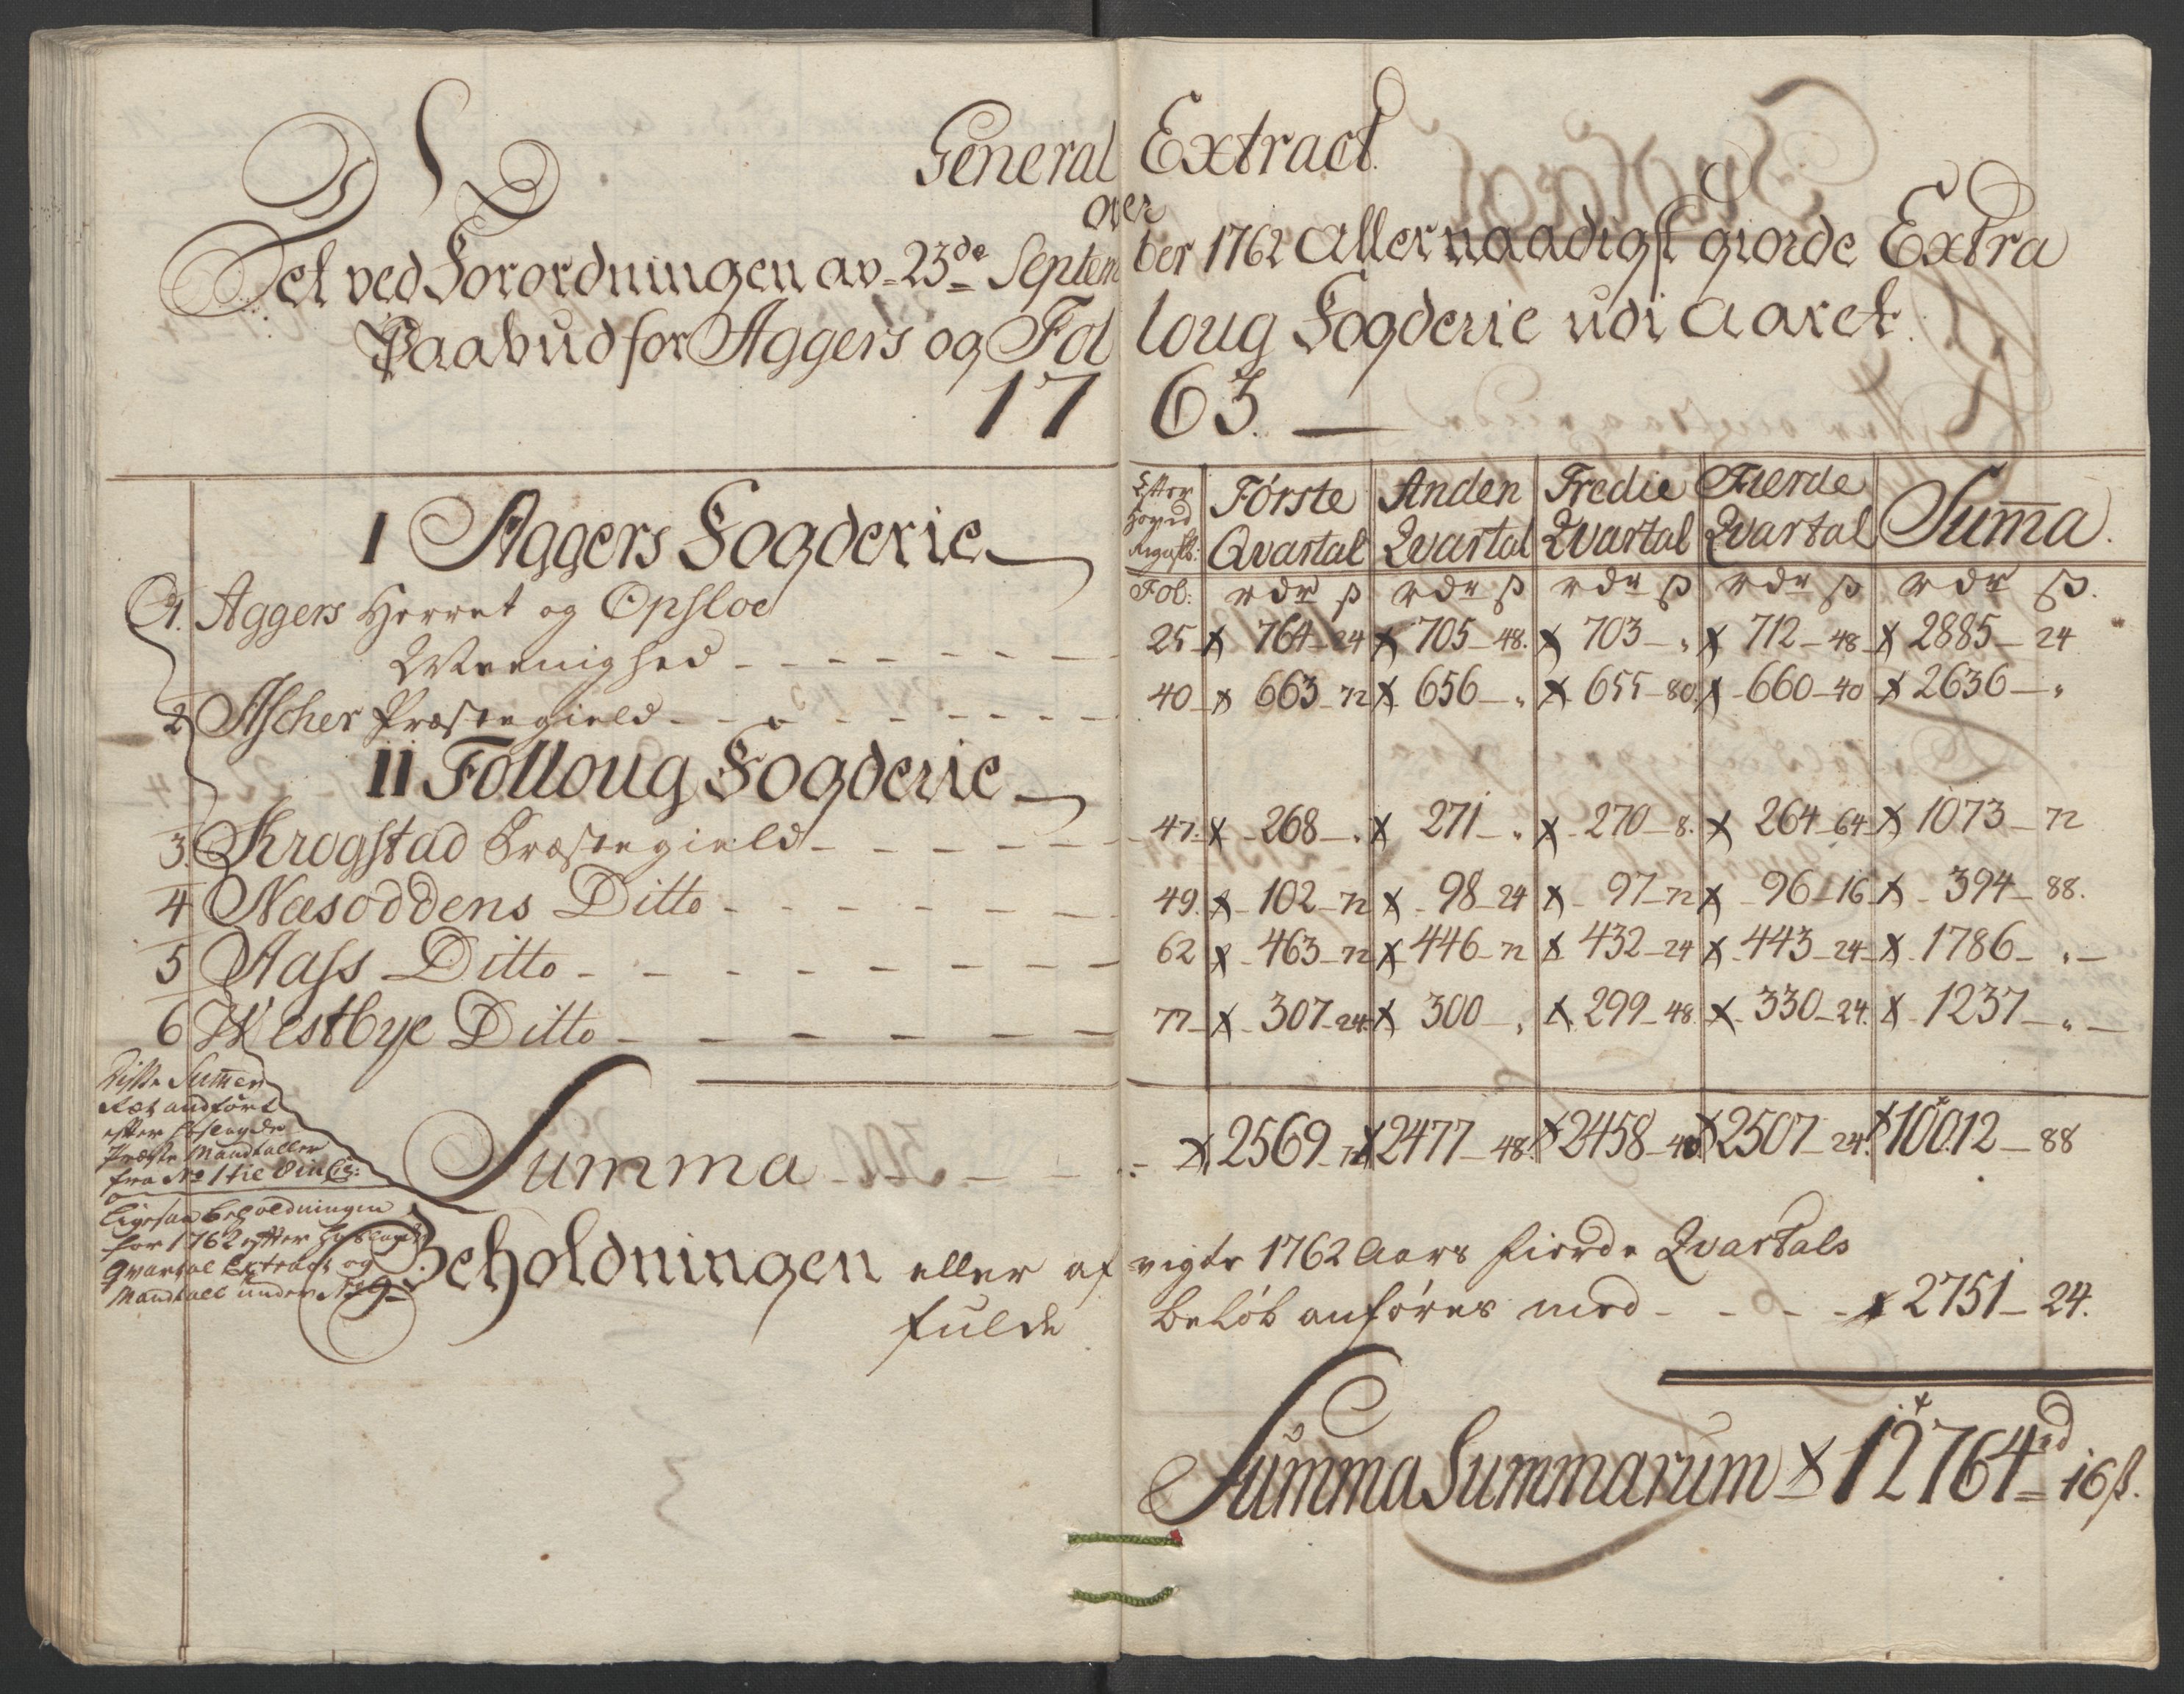 General Extract.
over
Det ved Forordningen av 23de September 1762 Allernaadigst giorde Extra
Paabud for Aggers og Folloug Fogderie udi Aaret
1763.
Efter Hoved Først: Første Qvartal Anden Qvartal Tredie Qvartal Fierde Qvartal Summa.
Fol: rdr ß rdr ß rdr ß rdr ß rdr ß.
I Aggers Fogderie
1. Aggers Herret og Opsloe
25 764 24 705 48. 703 „ 712 48 2885 24
2 Ascher Præstegield 40 663 72 656 „ 655 80. 660 40 2636 „
II Folloug Fogderie
3. Krogstad Præstegield 47. 268 „ 271 „ 270 8. 264 64 1073 72
4 Næsoddens Ditto 49. 102 72 98 24 97 72 96 16 394 88.
5 Aass Ditto 62 463 72 446 72 432 24 443 24 1786 „
6 Westbye Ditto 77 307 24 300 „ 299 48. 330 24. 1237 „
Summa 2569 72 2477 48. 2458 40 2507 24. 10012 88
Disse Summer
Ræt andført
efter hoslagde
Mandtaller
fra No 1 til 8
Ligesaa beholdningen
for 1762 efter
Qvartal Extract og
Mandtall under No 9
Beholdningen eller afvigte 1762 Aars fierde Qvartals
fulde beløb anføres med 2751 24.
Summa Summarum 12764 rd 16 ß.